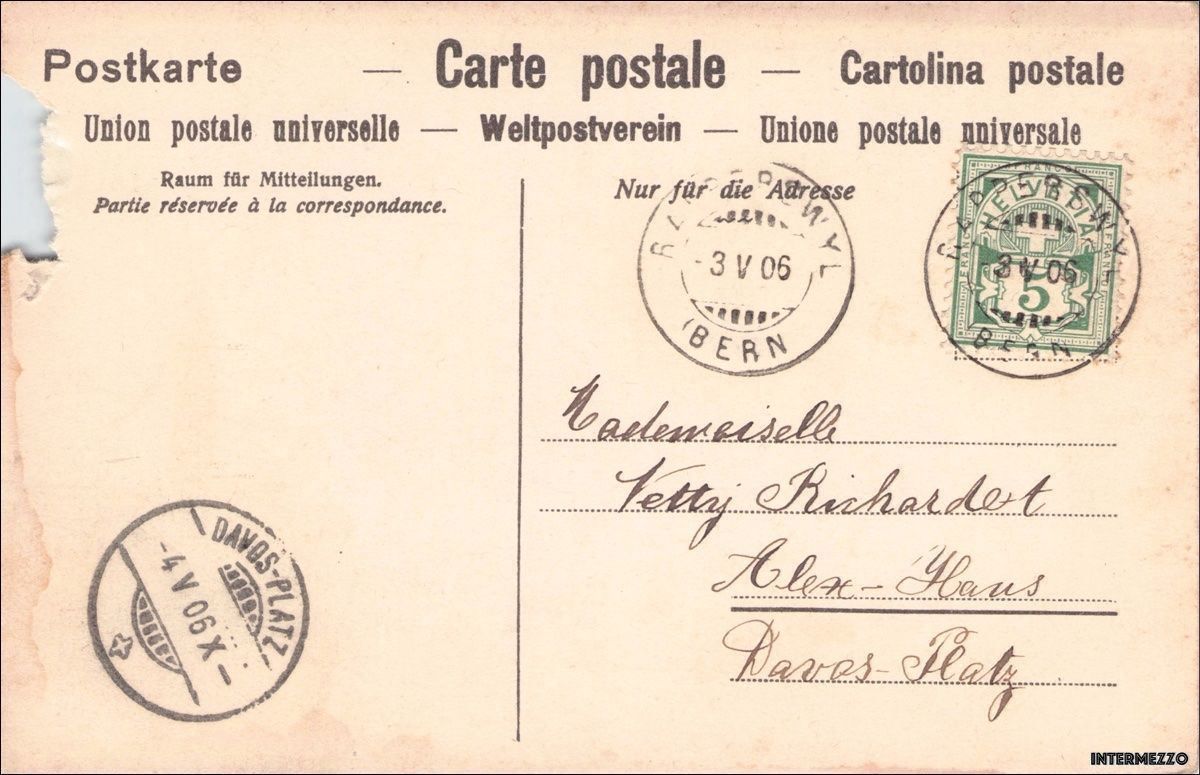 Postkarte — Carte postale — Cartolina postale
Union postale universelle — Weltpostverein — Unione postale universale
Raum für Mitteilungen.
Partie réservée à la correspondance.
Nur für die Adresse
RAPPERSWYL
-3 V 06
(BERN
FRANCO
HELVETIA
FRANCO
FRANCO
5
RAPPERSWYL
-3 V 06
BERN
Mademoiselle
Netty Richardet
Alex-Haus
Davos-Platz
DAVOS-PLATZ
-4 V 06 X-
INTERMEZZO